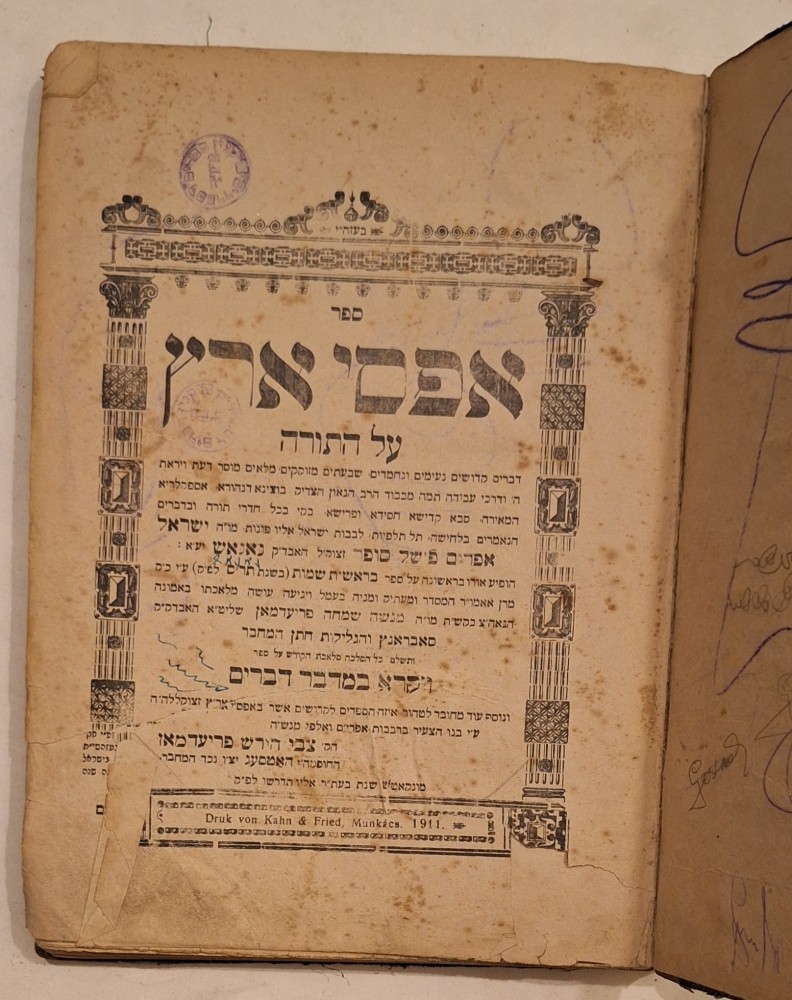 בעזהי״י
ספר
אפסי ארץ
על התורה
דברים קדושים נעימים ונחמדים שבעתים מזוקקים מלאים מוסר דעת ויראת
ה׳ ודרכי עבודה תמה מכבוד הרב הגאון הצדיק בוצינא דנהורא אספקלריא
המאירה, סבא קדישא חסידא ופרישא, בקי בכל חדרי תורה ובדברים
הנאמרים בלחישה, תל תלפיות, לבבות ישראל אליו פונות, מו״ה ישראל
אפרים פישל סופר זצוק״ל האבד״ק נאנאש יע״א :
הופיע אורו בראשונה על ספר בראשית שמות (בשנת תר״ס לפ״ק) ע״י כ״ק
מרן אאמו״ר המסדר ומעתיק ומגיה בעמל ויגיעה עושה מלאכתו באמונה
הגאה״צ כקש״ת מו״ה מנשה שמחה פריעדמאן שליט״א האבדק״ק
סאבראנץ והגלילות חתן המחבר
ותשלם כל המלכה מלאכת הקודש על ספר
ויקרא במדבר דברים
ונוסף עוד מחובר לטהור איזה הספדים לקדושים אשר באפסי ארץ זצוקללה״ה
ע״י בנו הצעיר ברבבות אפרים ואלפי מנשה
הק׳ צבי הירש פריעדמאן
החופ״ה האמסעג יצ״ו נכד המחבר.
מונקאטש שנת בעת״ר אליו תדרשו לפ״ק
Druk von Kahn & Fried, Munkács. 1911.